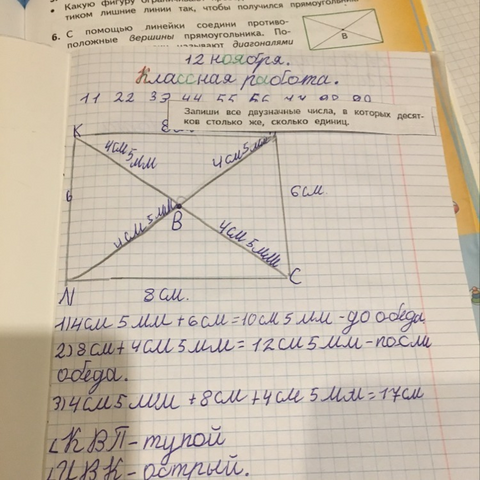 Какую фигуру
тиком лишние линии так, чтобы получился прямоугольник
6. С помощью линейки соедини противо-
положные вершины прямоугольника. По-
называют диагоналями
B
12 ноября.
Классная работа.
11 22 33 44 55 66
Запиши все двузначные числа, в которых десят-
ков столько же, сколько единиц.
K
4см 5мм
4см 5мм
6
6см
B
4см 5мм
4см 5мм
N
8см.
C
1) 4см 5мм + 6см = 10см 5мм - до обеда
2) 8см + 4см 5мм = 12см 5мм - после
обеда.
3) 4см 5мм + 8см + 4см 5мм = 17см
∠КВП - тупой
- острый.